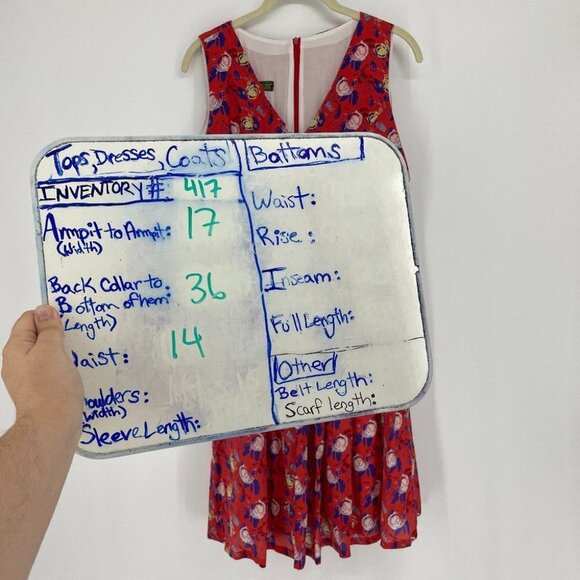 Tops, Dresses, Coats
INVENTORY #: 417
Armpit to Armpit: 17
(Width)
Back Collar to
Bottom of hem: 36
(Length)
Waist: 14
houlders:
(Width)
Sleeve Length:
Bottoms
Waist:
Rise:
Inseam:
Full Length:
Other
Belt Length:
Scarf length: